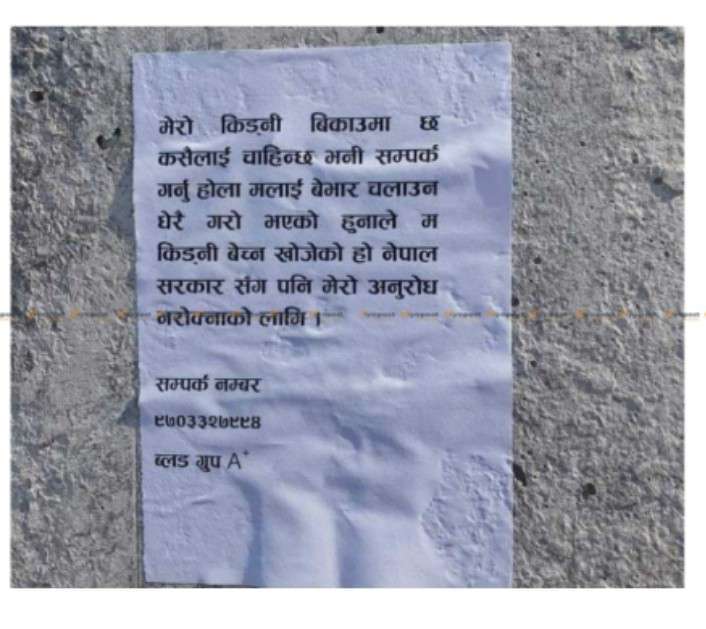 मेरो किड्नी बिकाउमा छ
कसैलाई चाहिन्छ भनी सम्पर्क
गर्नु होला मलाई बेभार चलाउन
धेरै गरो भएको हुनाले म
किड्नी बेच्न खोजेको हो नेपाल
सरकार संग पनि मेरो अनुरोध
नरोक्नाको लागि ।
सम्पर्क नम्बर
९७०३३२७९९४
ब्लड ग्रुप A+